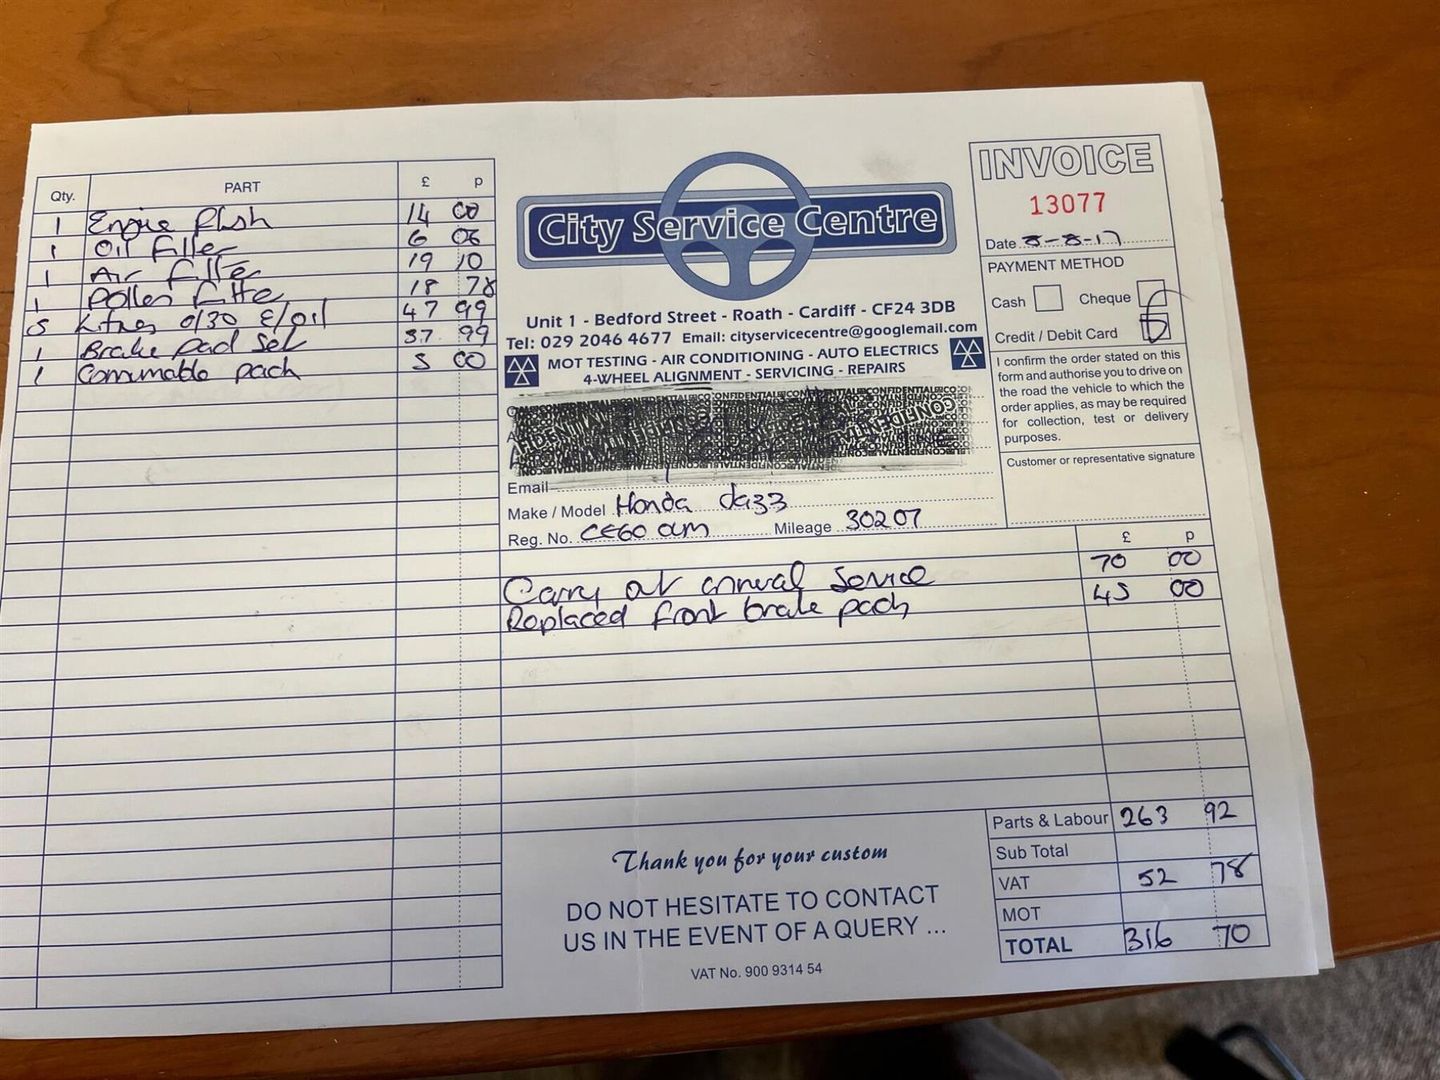 Qty. PART £ p
1 Engine flush 14 00
1 Oil filter 6 06
1 Air filter 19 10
1 Pollen filter 18 78
5 Litres 0/30 E/oil 47 99
1 Brake pad set 37. 99
1 Consumable pack 5 00
City Service Centre
Unit 1 - Bedford Street - Roath - Cardiff - CF24 3DB
Tel: 029 2046 4677 Email: cityservicecentre@googlemail.com
MOT TESTING - AIR CONDITIONING - AUTO ELECTRICS
4-WHEEL ALIGNMENT - SERVICING - REPAIRS
CONFIDENTIAL
Email
Make / Model Honda Jazz
Reg. No. CE60 Mileage 30207
INVOICE
13077
Date 8-8-17
PAYMENT METHOD
Cash Cheque
Credit / Debit Card
I confirm the order stated on this
form and authorise you to drive on
the road the vehicle to which the
order applies, as may be required
for collection, test or delivery
purposes.
Customer or representative signature
£ p
Carry out annual service 70 00
Replaced front brake pads 45 00
Parts & Labour 263 92
Sub Total
VAT 52 78
MOT
TOTAL 316 70
Thank you for your custom
DO NOT HESITATE TO CONTACT
US IN THE EVENT OF A QUERY ...
VAT No. 900 9314 54